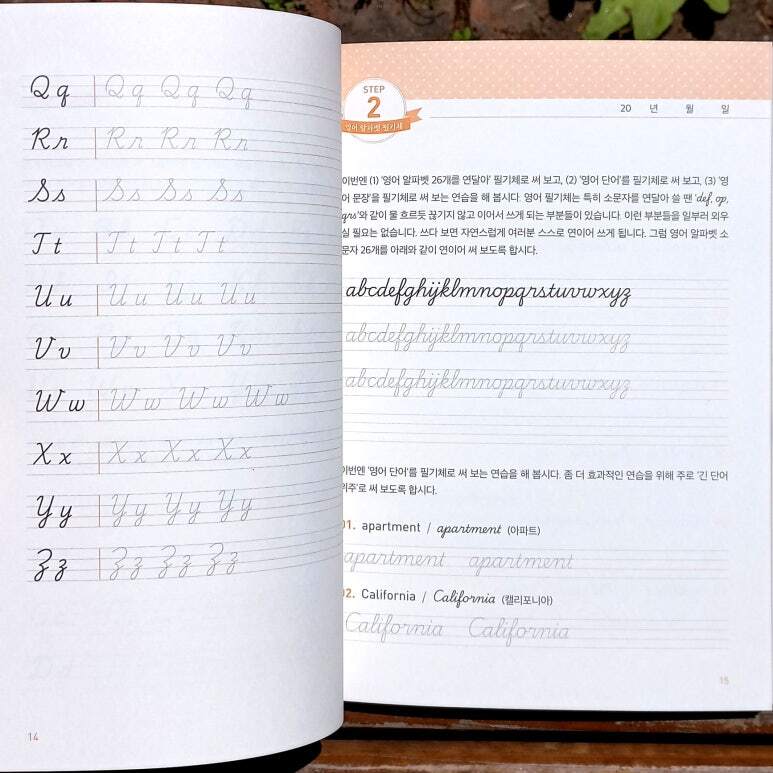 Qq Qq Qq Qq
Rr Rr Rr Rr
Ss Ss Ss Ss
Tt Tt Tt Tt
Uu Uu Uu Uu
Vv Vv Vv Vv
Ww Ww Ww Ww
Xx Xx Xx Xx
Yy Yy Yy Yy
Zz Zz Zz Zz
14
STEP
2
영어 알파벳 필기체
20 년 월 일
이번엔 (1) '영어 알파벳 26개를 연달아' 필기체로 써 보고, (2) '영어 단어'를 필기체로 써 보고, (3) '영
어 문장'을 필기체로 써 보는 연습을 해 봅시다. 영어 필기체는 특히 소문자를 연달아 쓸 땐 'def, op,
qrs'와 같이 물 흐르듯 끊기지 않고 이어서 쓰게 되는 부분들이 있습니다. 이런 부분들을 일부러 외우
실 필요는 없습니다. 쓰다 보면 자연스럽게 여러분 스스로 연이어 쓰게 됩니다. 그럼 영어 알파벳 소
문자 26개를 아래와 같이 연이어 써 보도록 합시다.
abcdefghijklmnopqrstuvwxyz
abcdefghijklmnopqrstuvwxyz
abcdefghijklmnopqrstuvwxyz
이번엔 '영어 단어'를 필기체로 써 보는 연습을 해 봅시다. 좀 더 효과적인 연습을 위해 주로 '긴 단어
위주'로 써 보도록 합시다.
01. apartment / apartment (아파트)
apartment apartment
02. California / California (캘리포니아)
California California
15